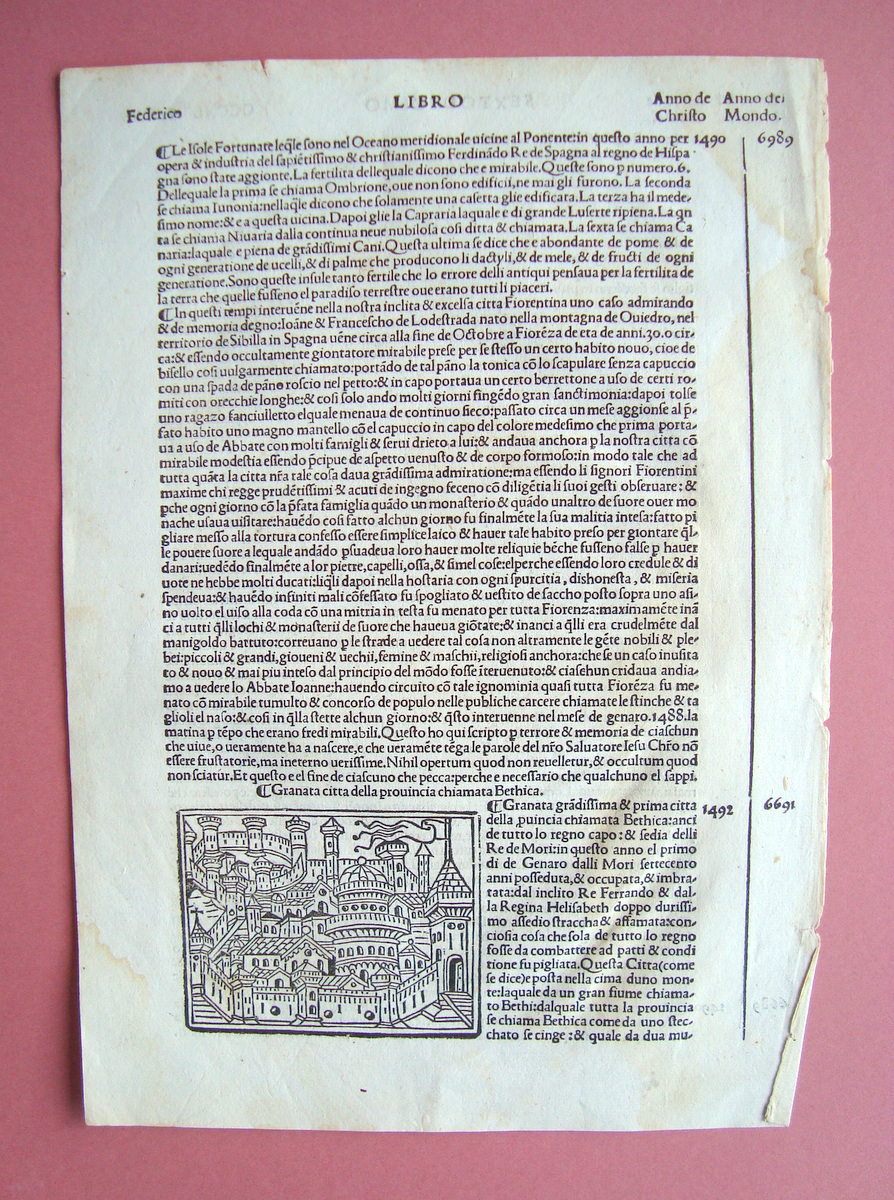 LIBRO
Federico
Anno de Anno del
Christo Mondo.
⸿Le Isole Fortunate leq̃le sono nel Oceano meridionale uicine al Ponente:in questo anno per 1490 6989
opera & industria del sapiẽtissimo & christianissimo Ferdinãdo Re de Spagna al regno de Hispa
gna sono state aggionte.La fertilita dellequale dicono che e mirabile.Queste sono p numero.6.
Dellequale la prima se chiama Ombrione,oue non sono edificii,ne mai gli furono. La seconda
se chiama Iunonia:nellaq̃le dicono che solamente una casetta glie edificata.La terza ha il mede-
simo nome:& e a questa uicina.Dapoi glie la Capraria laquale e di grande Luserte ripiena.La qn
ta se chiama Niuaria dalla continua neue nubilosa cosi ditta & chiamata.La sexta se chiama Ca
naria:laquale e piena de grãdissimi Cani.Questa ultima se dice che e abondante de pome & de
ogni generatione de ucelli,& di palme che producono li dactyli,& de mele, & de fructi de ogni
generatione.Sono queste insule tanto fertile che lo errore delli antiqui pensaua per la fertilita de
la terra che quelle fusseno el paradiso terrestre oue erano tutti li piaceri.
⸿In questi tempi interuẽne nella nostra inclita & excelsa citta Fiorentina uno caso admirando
& de memoria degno:Ioãne & Francescho de Lodestrada nato nella montagna de Ouiedro, nel
territorio de Sibilla in Spagna uẽne circa alla fine de Octobre a Fiorẽza de eta de anni.30.o cir-
ca:& essendo occultamente giontatore mirabile prese per se stesso un certo habito nouo, cioe de
bisello cosi uulgarmente chiamato:portãdo de tal pãno la tonica cõ lo scapulare senza capuccio
con una spada de pãno roscio nel petto:& in capo portaua un certo berrettone a uso de certi ro-
miti con orecchie longhe:& cosi solo ando molti giorni fingẽdo gran sanctimonia:dapoi tolse
uno ragazo fanciulletto elquale menaua de continuo sieco:passato circa un mese aggionse al p̃-
fato habito uno magno mantello cõ el capuccio in capo del colore medesimo che prima porta-
ua a uso de Abbate con molti famigli & serui drieto a lui:& andaua anchora p la nostra citta cõ
mirabile modestia essendo p̃cipue de aspetto uenusto & de corpo formoso:in modo tale che ad
tutta quãta la citta nr̃a tale cosa daua grãdissima admiratione;ma essendo li signori Fiorentini
maxime chi regge prudẽtissimi & acuti de ingegno feceno cõ diligẽtia li suoi gesti obseruare : &
pche ogni giorno cõ la p̃fata famiglia quãdo un monasterio & quãdo unaltro de suore ouer mo
nache usaua uisitare:hauẽdo cosi fatto alchun giorno fu finalmẽte la sua malitia intesa:fatto pi
gliare messo alla tortura confesso essere simplice laico & hauer tale habito preso per giontare q̃l-
le pouere suore a lequale andãdo psuadeua loro hauer molte reliquie bẽche fusseno false p hauer
danari:uedẽdo finalmẽte a lor pietre,capelli,ossa,& simel cose:elperche essendo loro credule & di
uote ne hebbe molti ducati:liq̃li dapoi nella hostaria con ogni spurcitia , dishonesta , & miseria
spendeua:& hauẽdo infiniti mali cõfessato fu spogliato & uestito de saccho posto sopra uno asi-
no uolto el uiso alla coda cõ una mitria in testa fu menato per tutta Fiorenza:maximamẽte inã
ci a tutti q̃lli lochi & monasterii de suore che haueua giõtate:& inanci a q̃lli era crudelmẽte dal
manigoldo battuto:correuano p le strade a uedere tal cosa non altramente le gẽte nobili & ple-
bei:piccoli & grandi,gioueni & uechii,femine & maschii,religiosi anchora:che se un caso inusita
to & nouo & mai piu inteso dal principio del mõdo fosse iteruenuto:& ciaschun cridaua andia-
mo a uedere lo Abbate Ioanne:hauendo circuito cõ tale ignominia quasi tutta Fiorẽza fu me-
nato cõ mirabile tumulto & concorso de populo nelle publiche carcere chiamate le stinche & ta
glioli el naso:& cosi in q̃lla stette alchun giorno:& q̃sto interuenne nel mese de genaro.1488.la
matina p tẽpo che erano fredi mirabili.Questo ho qui scripto p terrore & memoria de ciaschun
che uiue,o ueramente ha a nascere,e che ueramẽte tẽga le parole del nr̃o Saluatore Iesu Chr̃o nõ
essere frustatorie,ma in eterno uerissime.Nihil opertum quod non reuelletur,& occultum quod
non sciatur.Et questo e el fine de ciascuno che pecca:perche e necessario che qualchuno el sappi.
⸿Granata citta della prouincia chiamata Bethica.
⸿Granata grãdissima & prima citta 1492 6691
della ,puincia chiamata Bethica:anci
de tutto lo regno capo : & sedia delli
Re de Mori:in questo anno el primo
di de Genaro dalli Mori settecento
anni posseduta,& occupata,& imbra-
tata:dal inclito Re Ferrando & dal-
la Regina Helisabeth doppo durissi-
mo assedio straccha & affamata:con-
ciosia cosa che sola de tutto lo regno
fosse da combattere ad patti & condi
tione fu pigliata.Questa Citta(come
se dice)e posta nella cima duno mon-
te:laquale da un gran fiume chiama-
to Bethi:dalquale tutta la prouincia
se chiama Bethica come da uno stec-
chato se cinge :& quale da dua mu-